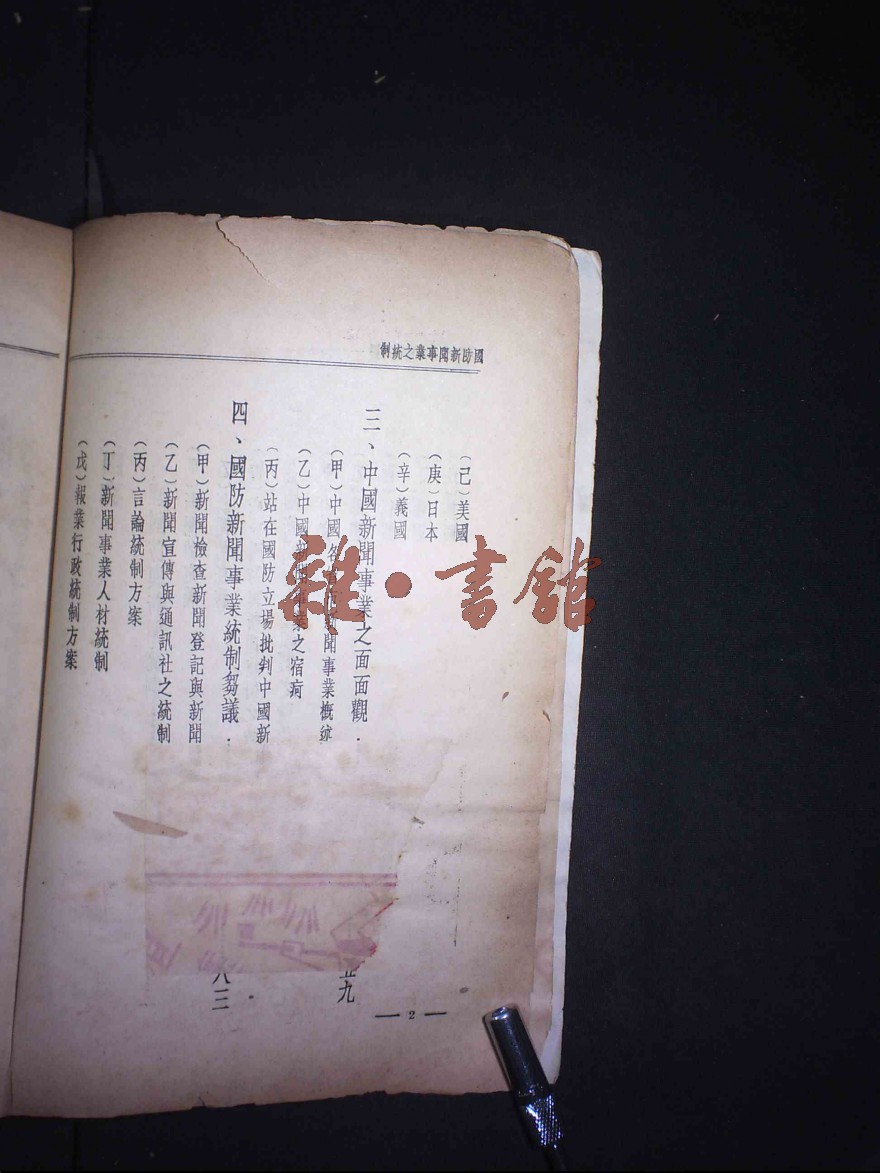 國防新聞事業之統制
(己)美國
(庚)日本
(辛)義國
三、中國新聞事業之面面觀.
五九
(甲)中國各 聞事業概述
(乙)中國 業之宿疴
(丙)站在國防立場批判中國新
四、國防新聞事業統制芻議.
八三
(甲)新聞檢查新聞登記與新聞
(乙)新聞宣傳與通訊社之統制
(丙)言論統制方案
(丁)新聞事業人材統制
(戊)報業行政統制方案
— 2 —
雜·書館